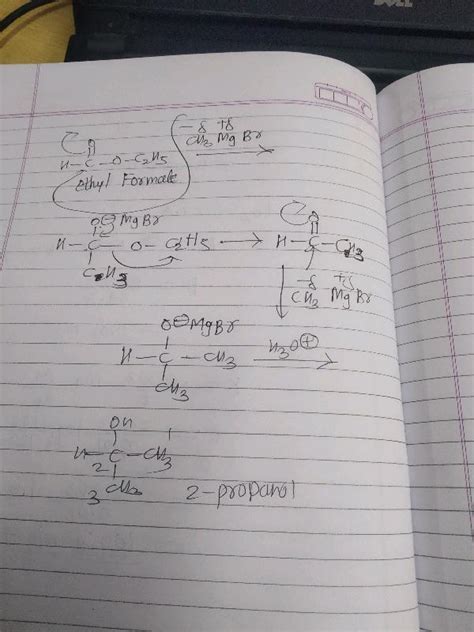 DELL
-δ +δ
CH3 MgBr
O
H-C-O-C2H5
Ethyl Formate
O⊖MgBr
H-C-O-C2H5 → H-C-CH3
CH3
-δ +δ
CH3 MgBr
O⊖MgBr
H-C-CH3 H3O⊕
CH3
OH
1
H-C-CH3
2
3 CH3 2-propanol